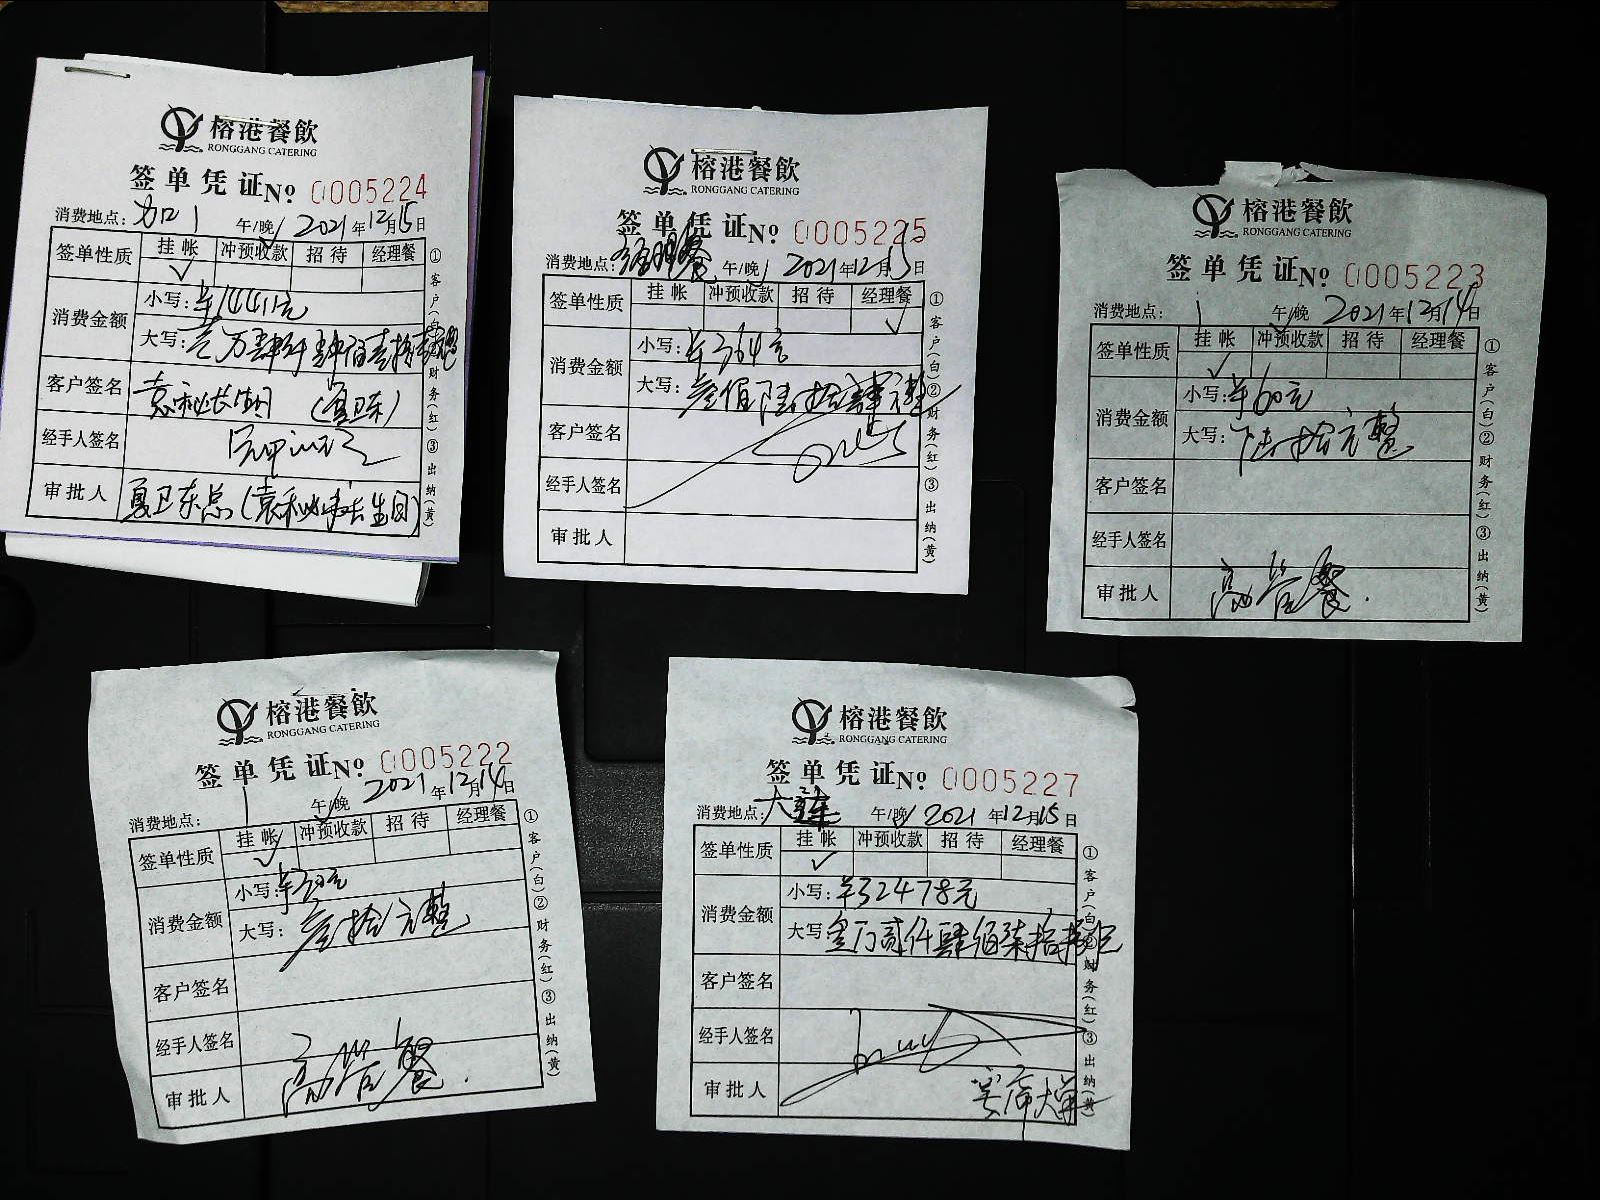 榕港餐飲
RONGGANG CATERING
签单凭证 No 0005224
消费地点: 午/晚 2021年12月15日
签单性质 挂帐 冲预收款 招待 经理餐
✓
消费金额 小写: ¥14411元
大写: 壹万肆仟肆佰壹拾壹元
客户签名 袁秘长生日 (夏卫东)
经手人签名
审批人 夏卫东总(袁秘书长生日)
①客户(白)②财务(红)③出纳(黄)
榕港餐飲
RONGGANG CATERING
签单凭证 No 0005225
消费地点: 经理餐 午/晚 2021年12月15日
签单性质 挂帐 冲预收款 招待 经理餐
✓
消费金额 小写: ¥364元
大写: 叁佰陆拾肆元整
客户签名
经手人签名
审批人
①客户(白)②财务(红)③出纳(黄)
榕港餐飲
RONGGANG CATERING
签单凭证 No 0005223
消费地点: 午/晚 2021年12月14日
签单性质 挂帐 冲预收款 招待 经理餐
✓
消费金额 小写: ¥60元
大写: 陆拾元整
客户签名
经手人签名
审批人 高管餐.
①客户(白)②财务(红)③出纳(黄)
榕港餐飲
RONGGANG CATERING
签单凭证 No 0005222
消费地点: 午/晚 2021年12月14日
签单性质 挂帐 冲预收款 招待 经理餐
✓
消费金额 小写: ¥30元
大写: 叁拾元整
客户签名
经手人签名
审批人 高管餐.
①客户(白)②财务(红)③出纳(黄)
榕港餐飲
RONGGANG CATERING
签单凭证 No 0005227
消费地点: 大 午/晚 2021年12月15日
签单性质 挂帐 冲预收款 招待 经理餐
✓
消费金额 小写: ¥32478元
大写: 叁万贰仟肆佰柒拾捌元
客户签名
经手人签名
审批人
①客户(白)②财务(红)③出纳(黄)